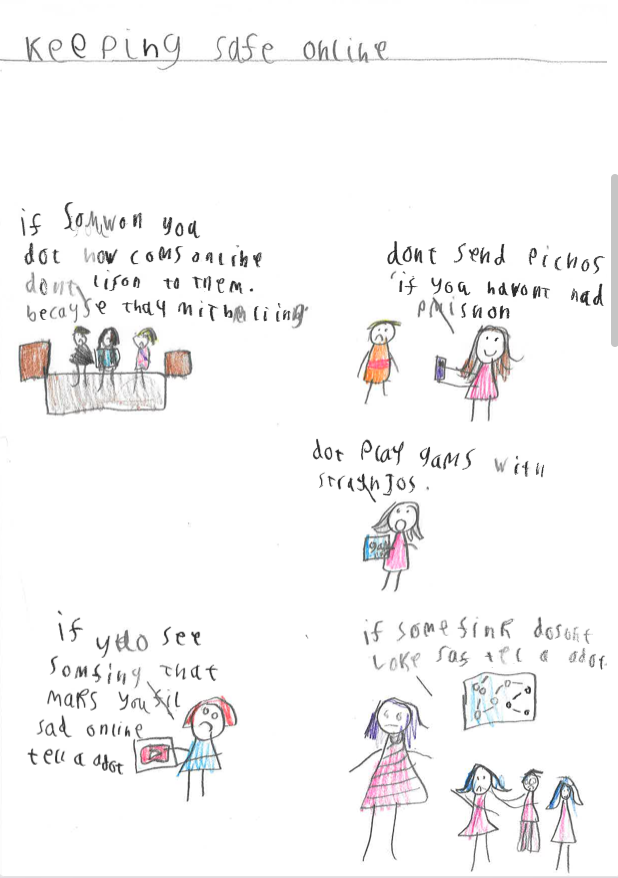 keeping safe online
if Somwon you
dot now coms online
dont lison to them.
becayse thay mit be liing
dont send pichos
if you havont had
pmishon
dot play gams with
straynjos.
if you see
somsing that
maks you fil
sad online
tell a adot
if somefink dosont
Loke saf tell a adot.